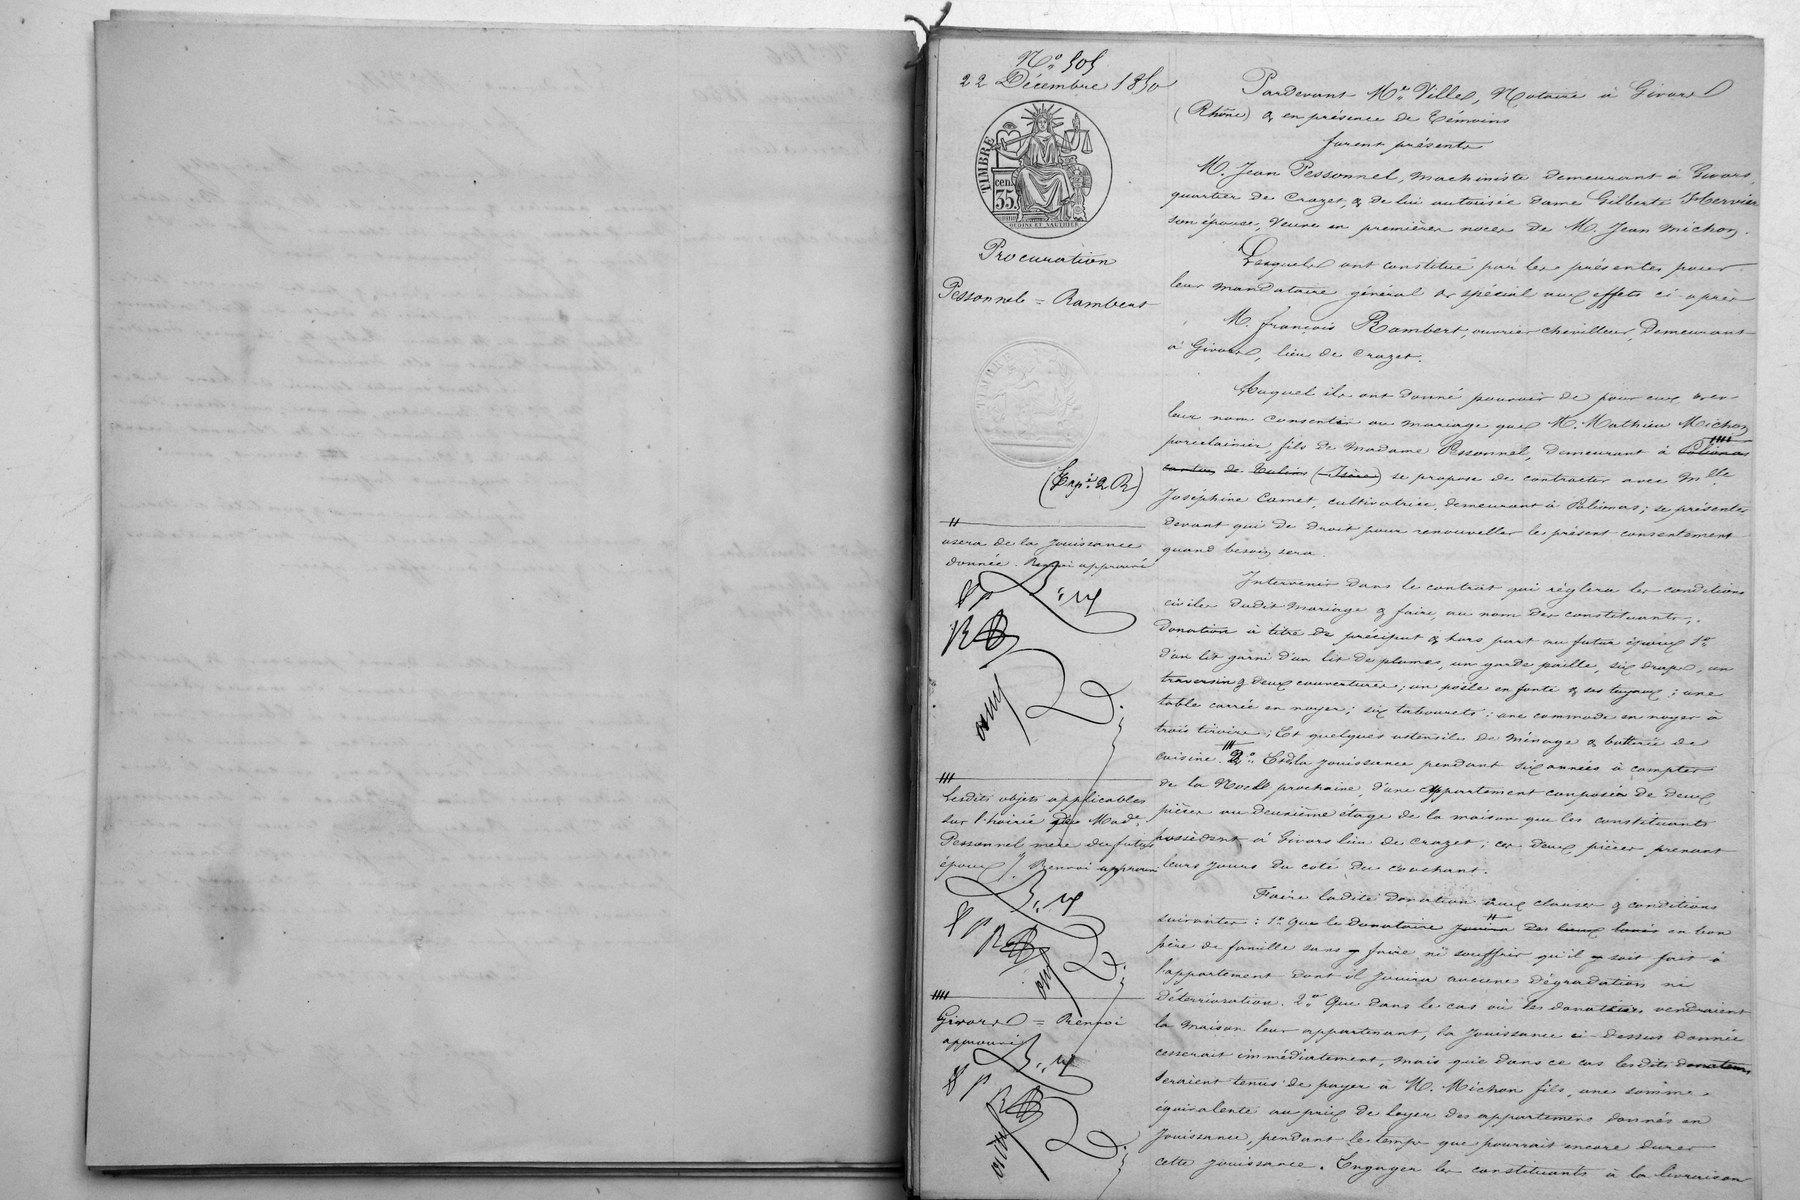 N.° 505
22 Décembre 1850
TIMBRE
cen.
35.
Procuration
Pessonnel = Rambert
TIMBRE
(Exp.é 2 R)
usera de la jouissance
donnée. Renvoi approuvé
Lesdits objets applicables
sur l'hoirie de Made
Pessonnel mère du futur
époux J. Renvoi approuvé
Givors = Renvoi
approuvé
Pardevant Me Ville, Notaire à Givors
(Rhône) & en présence de témoins
furent présents
M. Jean Pessonnel, machiniste demeurant à Givors,
quartier de Crozet, & de lui autorisée dame Gilberte Hervier
son épouse, veuve en premières noces de M. Jean Michon.
Lesquels ont constitué par les présentes pour
leur mandataire général & spécial aux effets ci-après
M. françois Rambert, ouvrier chevilleur, demeurant
à Givors, lieu de Crozet.
Auquel ils ont donné pouvoir de pour eux & en
leur nom consentir au mariage que M. Mathieu Michon
porcelainier, fils de Madame Pessonnel, demeurant à Polienas
canton de Tulins (Isère) se propose de contracter avec Mlle
Joséphine Camet, cultivatrice, demeurant à Polienas; se présenter
devant qui de droit pour renouveller le présent consentement
quand besoin sera.
Intervenir dans le contrat qui réglera les conditions
civiles dudit mariage & faire, au nom des constituants,
donation à titre de préciput & hors part au futur époux 1°
d'un lit garni d'un lit de plumes, un garde paille, six draps, un
traversin & deux couvertures; un poële en fonte & ses tuyaux; une
table carrée en noyer; six tabourets; une commode en noyer à
trois tiroirs; Et quelques ustensiles de ménage & batterie de
cuisine. 2° Et de la jouissance pendant six années à compter
de la Noël prochaine, d'une appartement composée de deux
pièces au deuxième étage de la maison que les constituants
possèdent à Givors lieu de Crozet; ces deux pièces prenant
leurs jours du coté du couchant.
Faire ladite donation aux clauses & conditions
suivantes: 1° Que le donataire jouira des lieux loués en bon
père de famille sans y faire ni souffrir qu'il y soit fait à
l'appartement dont il jouira aucune dégradation ni
détérioration. 2° Que dans le cas où les donateurs vendraient
la maison leur appartenant, la jouissance ci-dessus donnée
cesserait immédiatement, mais que dans ce cas lesdits donateurs
seraient tenus de payer à M. Michon fils, une somme
équivalente au prix de loyer des appartemens donnés en
jouissance, pendant le temps que pourrait encore durer
cette jouissance. Engager les constituants à la livraison